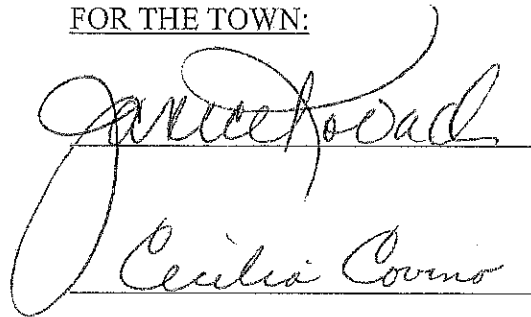 FOR THE TOWN:
Janice Kovach
Cecilia Covino